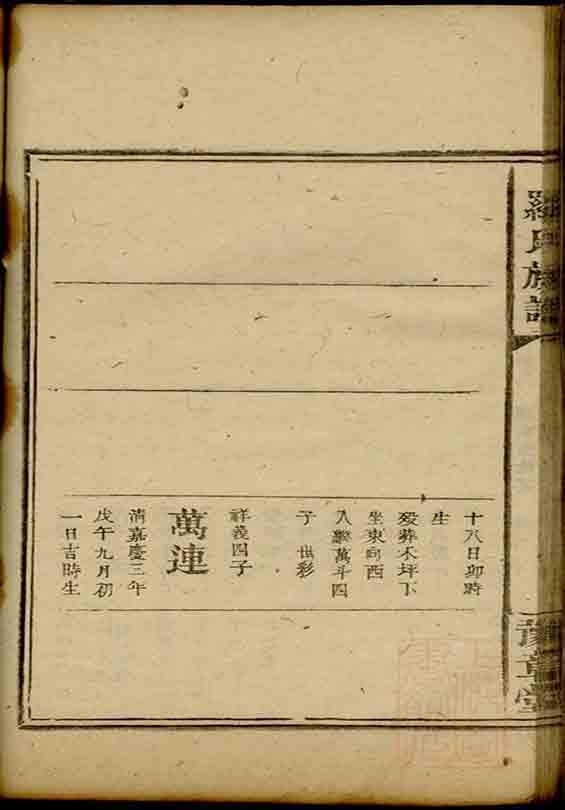 羅氏族譜
豫章堂
十八日卯時
生
歿葬木坪下
坐東向西
入繼萬斗四
子 世彩
祥義四子
萬連
清嘉慶三年
戊午九月初
一日吉時生